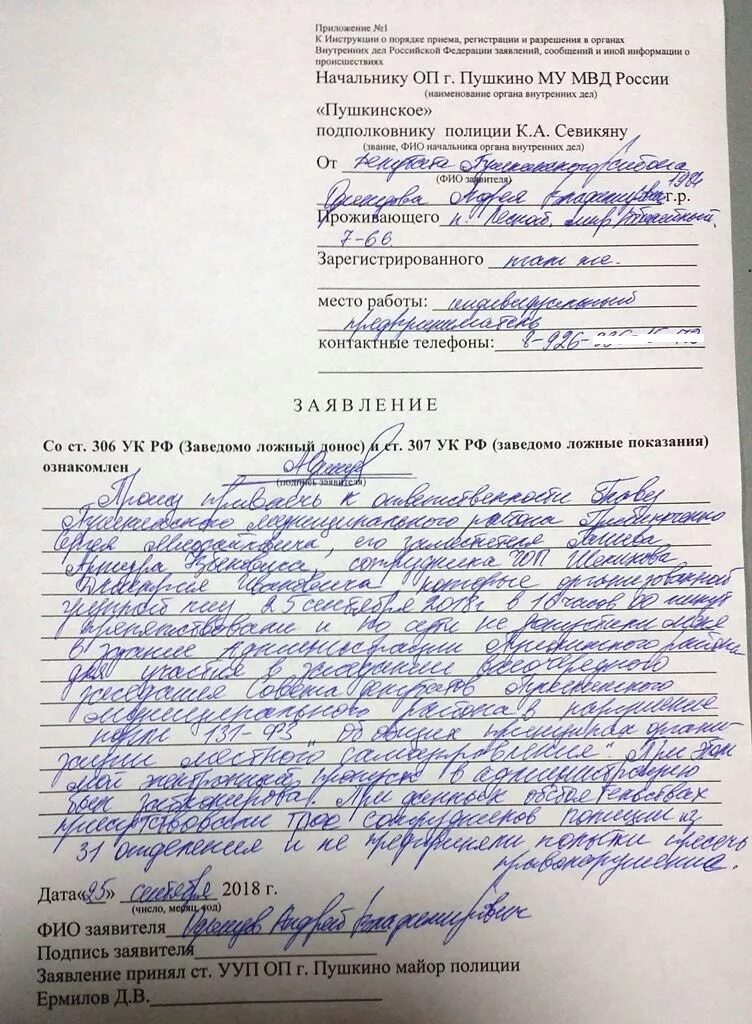 Приложение №1
К Инструкции о порядке приема, регистрации и разрешения в органах
Внутренних дел Российской Федерации заявлений, сообщений и иной информации о
происшествиях
Начальнику ОП г. Пушкино МУ МВД России
(наименование органа внутренних дел)
«Пушкинское»
подполковнику полиции К.А. Севикяну
(звание, ФИО начальника органа внутренних дел)
От депутата Пушкинского
(ФИО заявителя)
Андрея Владимировича 1984 г.р.
Проживающего п. Лесной, мкр
7-66
Зарегистрированного там же.
место работы: индивидуальный
предприниматель
контактные телефоны: 8-926-
ЗАЯВЛЕНИЕ
Со ст. 306 УК РФ (Заведомо ложный донос) и ст. 307 УК РФ (заведомо ложные показания)
ознакомлен
(подпись заявителя)
Прошу привлечь к ответственности Главу
Пушкинского муниципального района
Сергея Михайловича, его заместителя
сотрудника ЧОП
Дмитрия Ивановича которые организованной
группой лиц 25 сентября 2018г в 16 часов 00 минут
препятствовали и по сути не допустили меня
в здание администрации Пушкинского района
для участия в заседании внеочередного
заседания Совета депутатов Пушкинского
муниципального района в нарушение
норм 131-ФЗ "Об общих принципах органи-
зации местного самоуправления". При этом
мой электронный пропуск в администрацию
был заблокирован. При данных обстоятельствах
присутствовали трое сотрудников полиции из
31 отделения и не предприняли попытки пресечь
правонарушение.
Дата «25» сентября 2018 г.
(число, месяц, год)
ФИО заявителя Андрей Владимирович
Подпись заявителя
Заявление принял ст. УУП ОП г. Пушкино майор полиции
Ермилов Д.В.